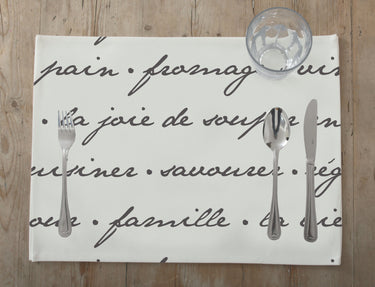 pain • fromag vin
• la joie de souper en
uisiner • savourer • rég
our • famille • la vie